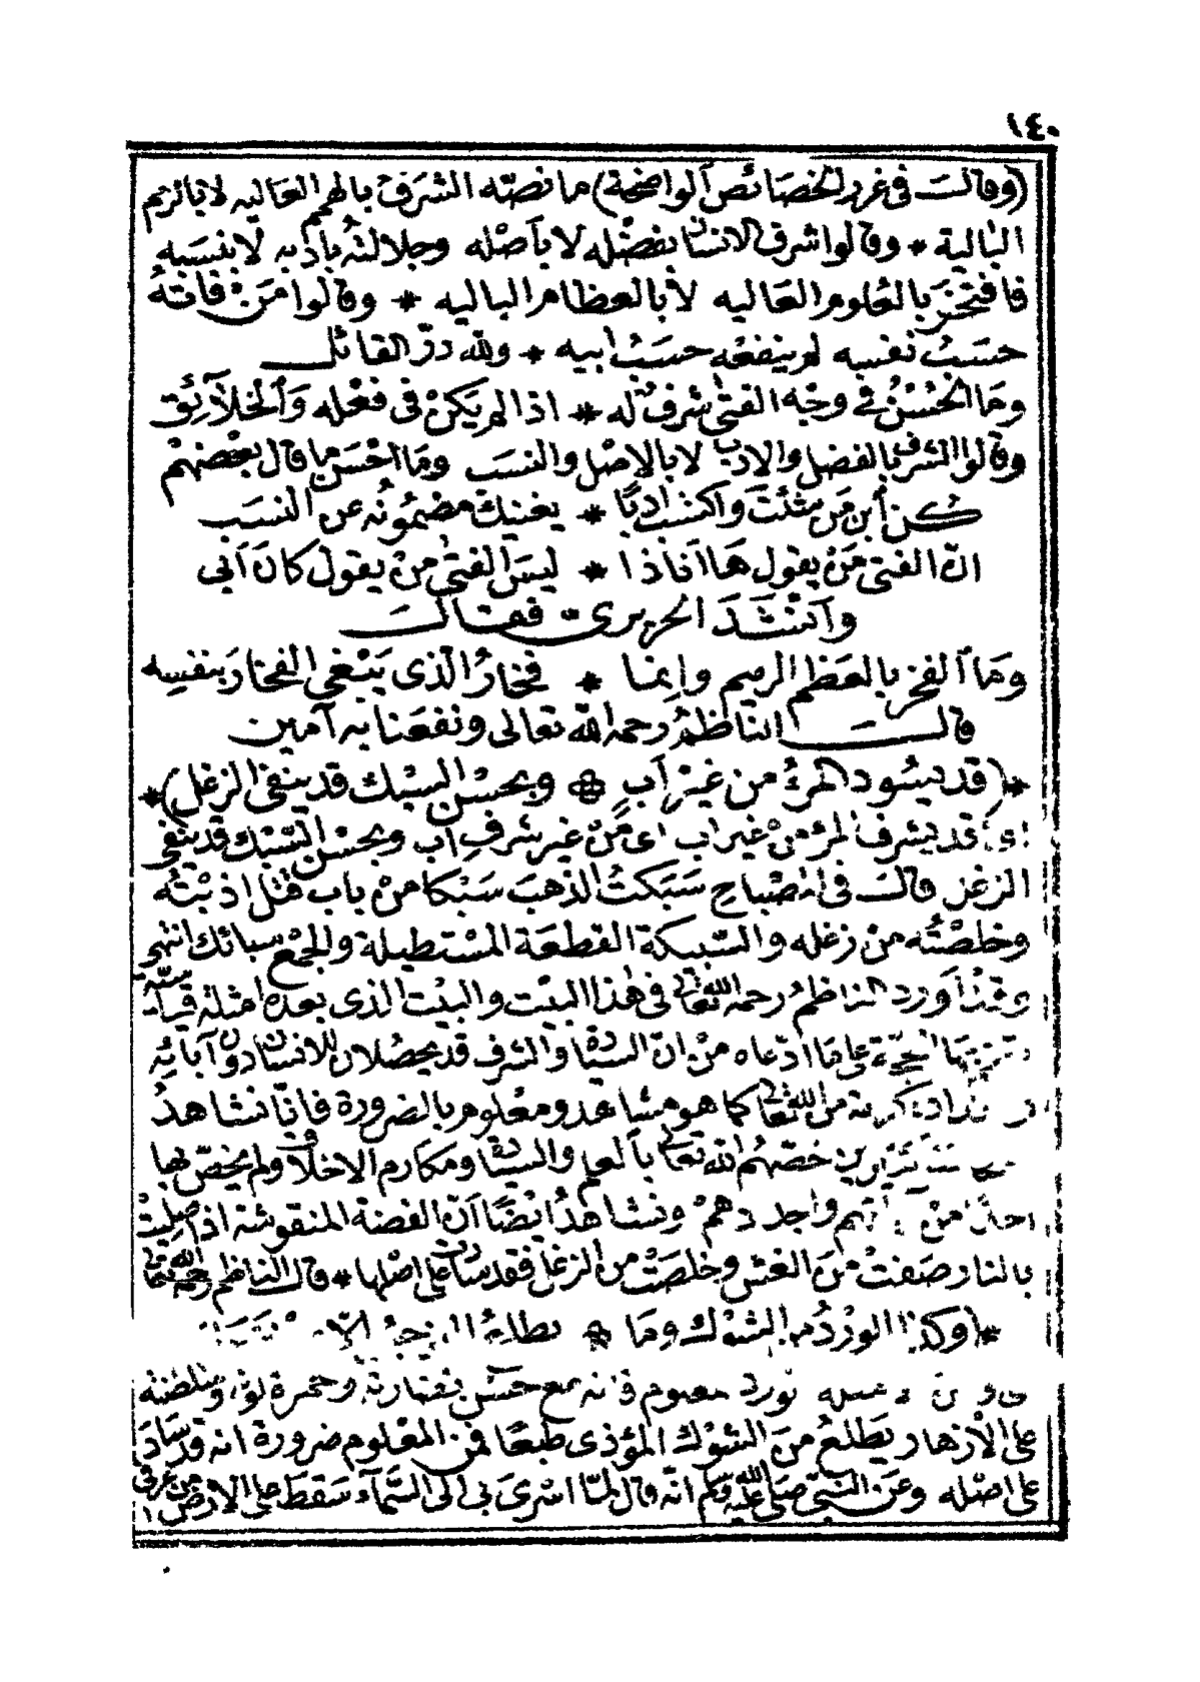 ١٤٠
(وقال في غرر الخصائص الواضحة) ما نصه الشرف بالهمم العاليه لا بالرمم
البالية * وقالوا شرف الانسان بفضله لا بأصله وجلالته بأدبه لا بنسبه
فافتخر بالعلوم العاليه لا بالعظام الباليه * وقالوا من فاته
حسب نفسه لم ينفعه حسب ابيه * ولله در القائل
وما الحسن في وجه الفتى شرف له * اذا لم يكن في فعله والخلائق
وقالوا الشرف بالفضل والادب لا بالاصل والنسب وما احسن ما قال بعضهم
كن ابن من شئت واكتسب ادبا * يغنيك مضمونه عن النسب
ان الفتى من يقول ها انا ذا * ليس الفتى من يقول كان ابي
وانشد الحريرى فقال
وما الفخر بالعظم الرميم وانما * فخار الذى يبغي الفخار بنفسه
قال الناظم رحمه الله تعالى ونفعنا به آمين
*(قد يسود المرء من غير أب * وبحسن السبك قد ينفى الزغل)*
اى قد يشرف المرء من غير اب اى من غير شرف اب وبحسن السبك قد ينفى
الزغل قال في المصباح سبكت الذهب سبكا من باب قتل اذبته
وخلصته من زغله والسبيكة القطعة المستطيلة والجمع سبائك انتهى
وقد أورد الناظم رحمه الله تعالى في هذا البيت والبيت الذى بعده امثلة قياسية
الحجة على ما ادعاه من ان السيادة والشرف قد يحصلان للانسان دون آبائه
من الله تعالى كما هو مشاهد ومعلوم بالضرورة فانا نشاهد
كثيرين خصهم الله تعالى بالعلم والسيادة ومكارم الاخلاق ولم يخص بها
احدا من آبائهم واجدادهم ونشاهد ايضا أن الفضة المنقوشة اذا صليت
بالنار صفت من الغش وخلصت من الزغل فقد سادت على اصلها * قال الناظم رحمه الله تعالى
*(وكذا الورد من الشوك وما * يطلع النرجس الا من بصل
الورد معلوم فانه مع حسن نضارته وحمرة لونه وسلطنته
على الازهار يطلع من الشوك المؤذى طبعا فمن المعلوم ضرورة انه قد ساد
على اصله وعن النبي صلى الله عليه وسلم انه قال لما اسرى بي الى السماء سقط على الارض من عرقي